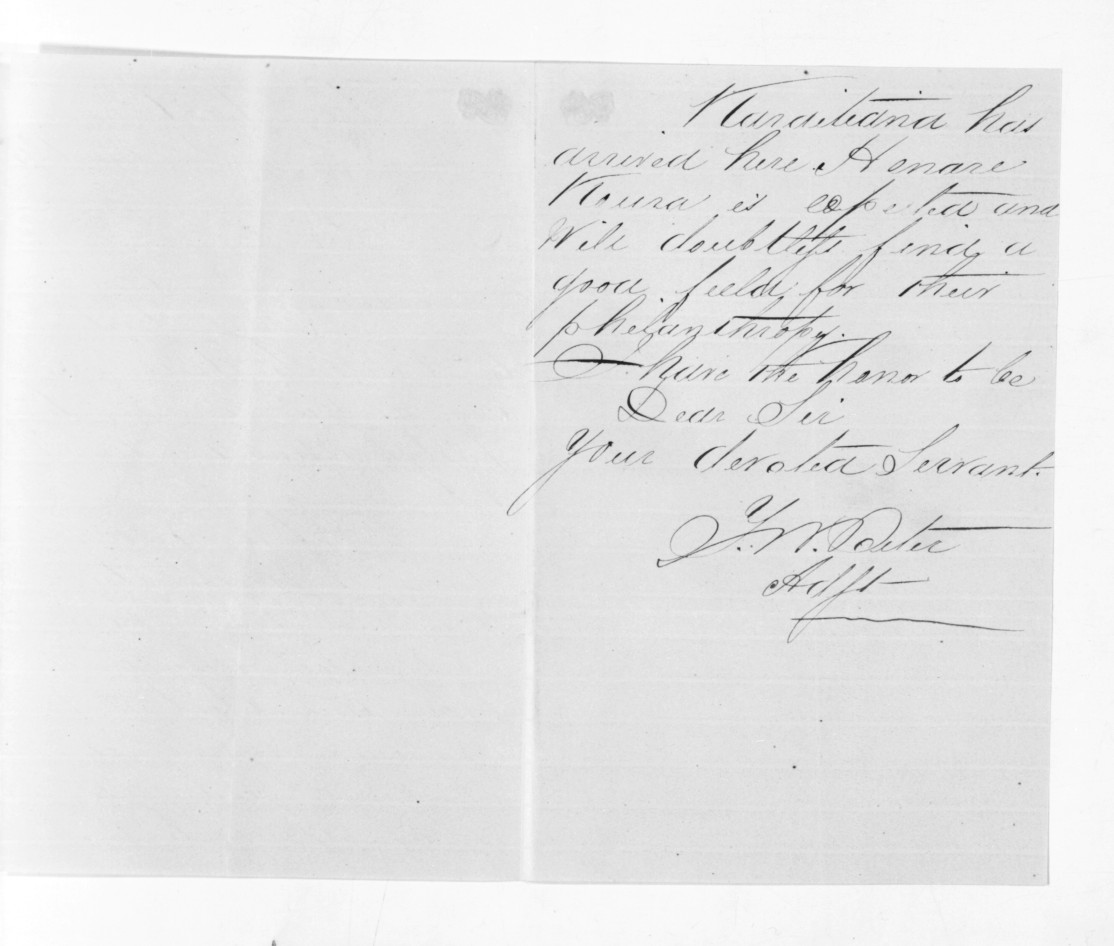 Karaitiana has
arrived here. Henare
Koura is expected and
Will doubtless find a
good field for their
philanthropy.
I have the honor to be
Dear Sir
Your devoted Servant.
F. W. Peter